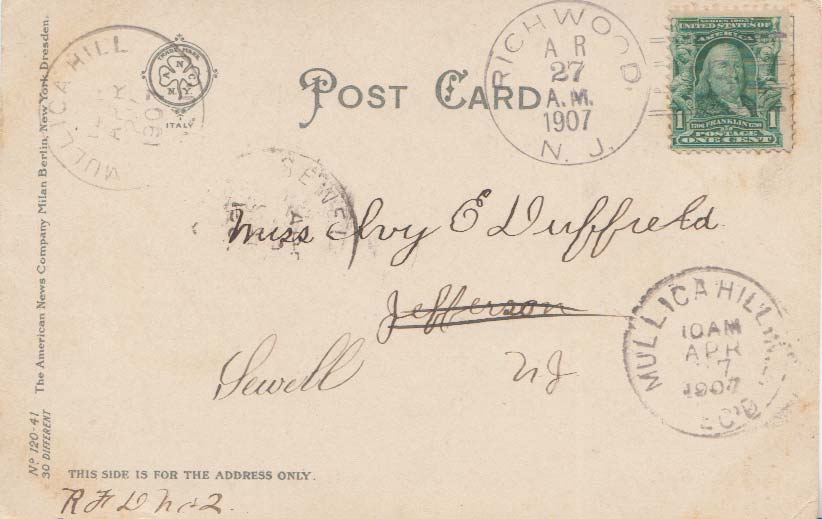 POST CARD
RICHWOOD,
AR
27
A.M.
1907
N. J.
SERIES 1902
UNITED STATES OF
AMERICA
1 FRANKLIN 1
POSTAGE
ONE CENT
MULLICA HILL
APR
190
TRADE MARK
A N Y C
ITALY
SEWELL
Miss Ivy E Duffield
Jefferson
Sewell NJ
MULLICA HILL
10AM
APR
7
1907
REC'D
The American News Company Milan Berlin, New York Dresden.
No 120-41
30 DIFFERENT
THIS SIDE IS FOR THE ADDRESS ONLY.
R F D No 2